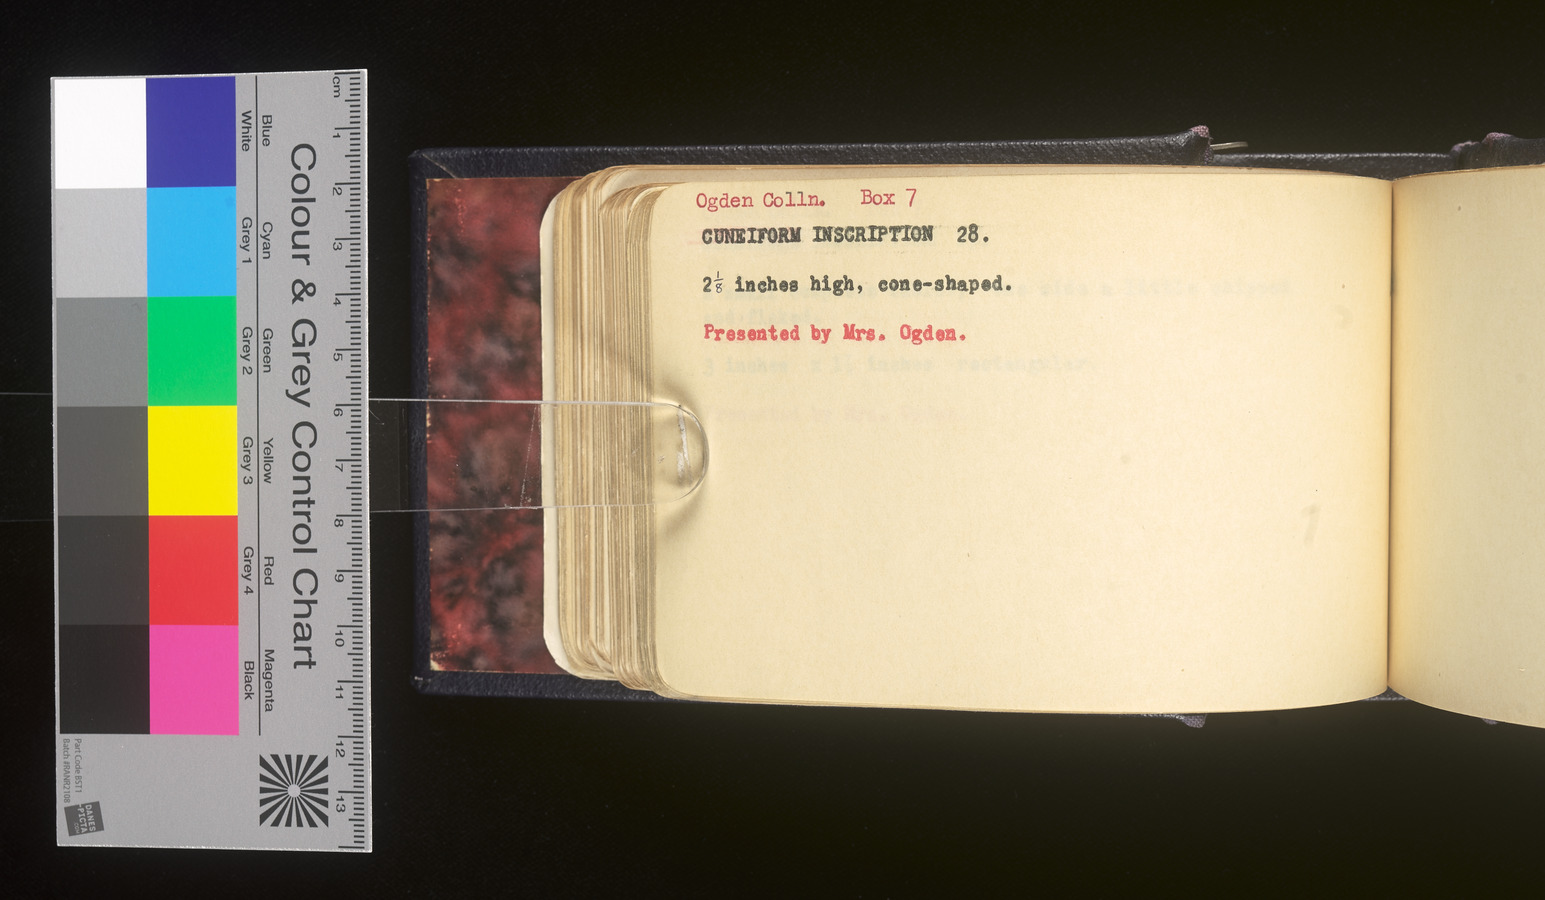 Ogden Colln. Box 7
CUNEIFORM INSCRIPTION 28.
2⅛ inches high, cone-shaped.
Presented by Mrs. Ogden.
Colour & Grey Control Chart
Blue Cyan Green Yellow Red Magenta
White Grey 1 Grey 2 Grey 3 Grey 4 Black
cm 1 2 3 4 5 6 7 8 9 10 11 12 13
Part Code BST1
Batch #RANR2108
DANES
-PICTA
.COM